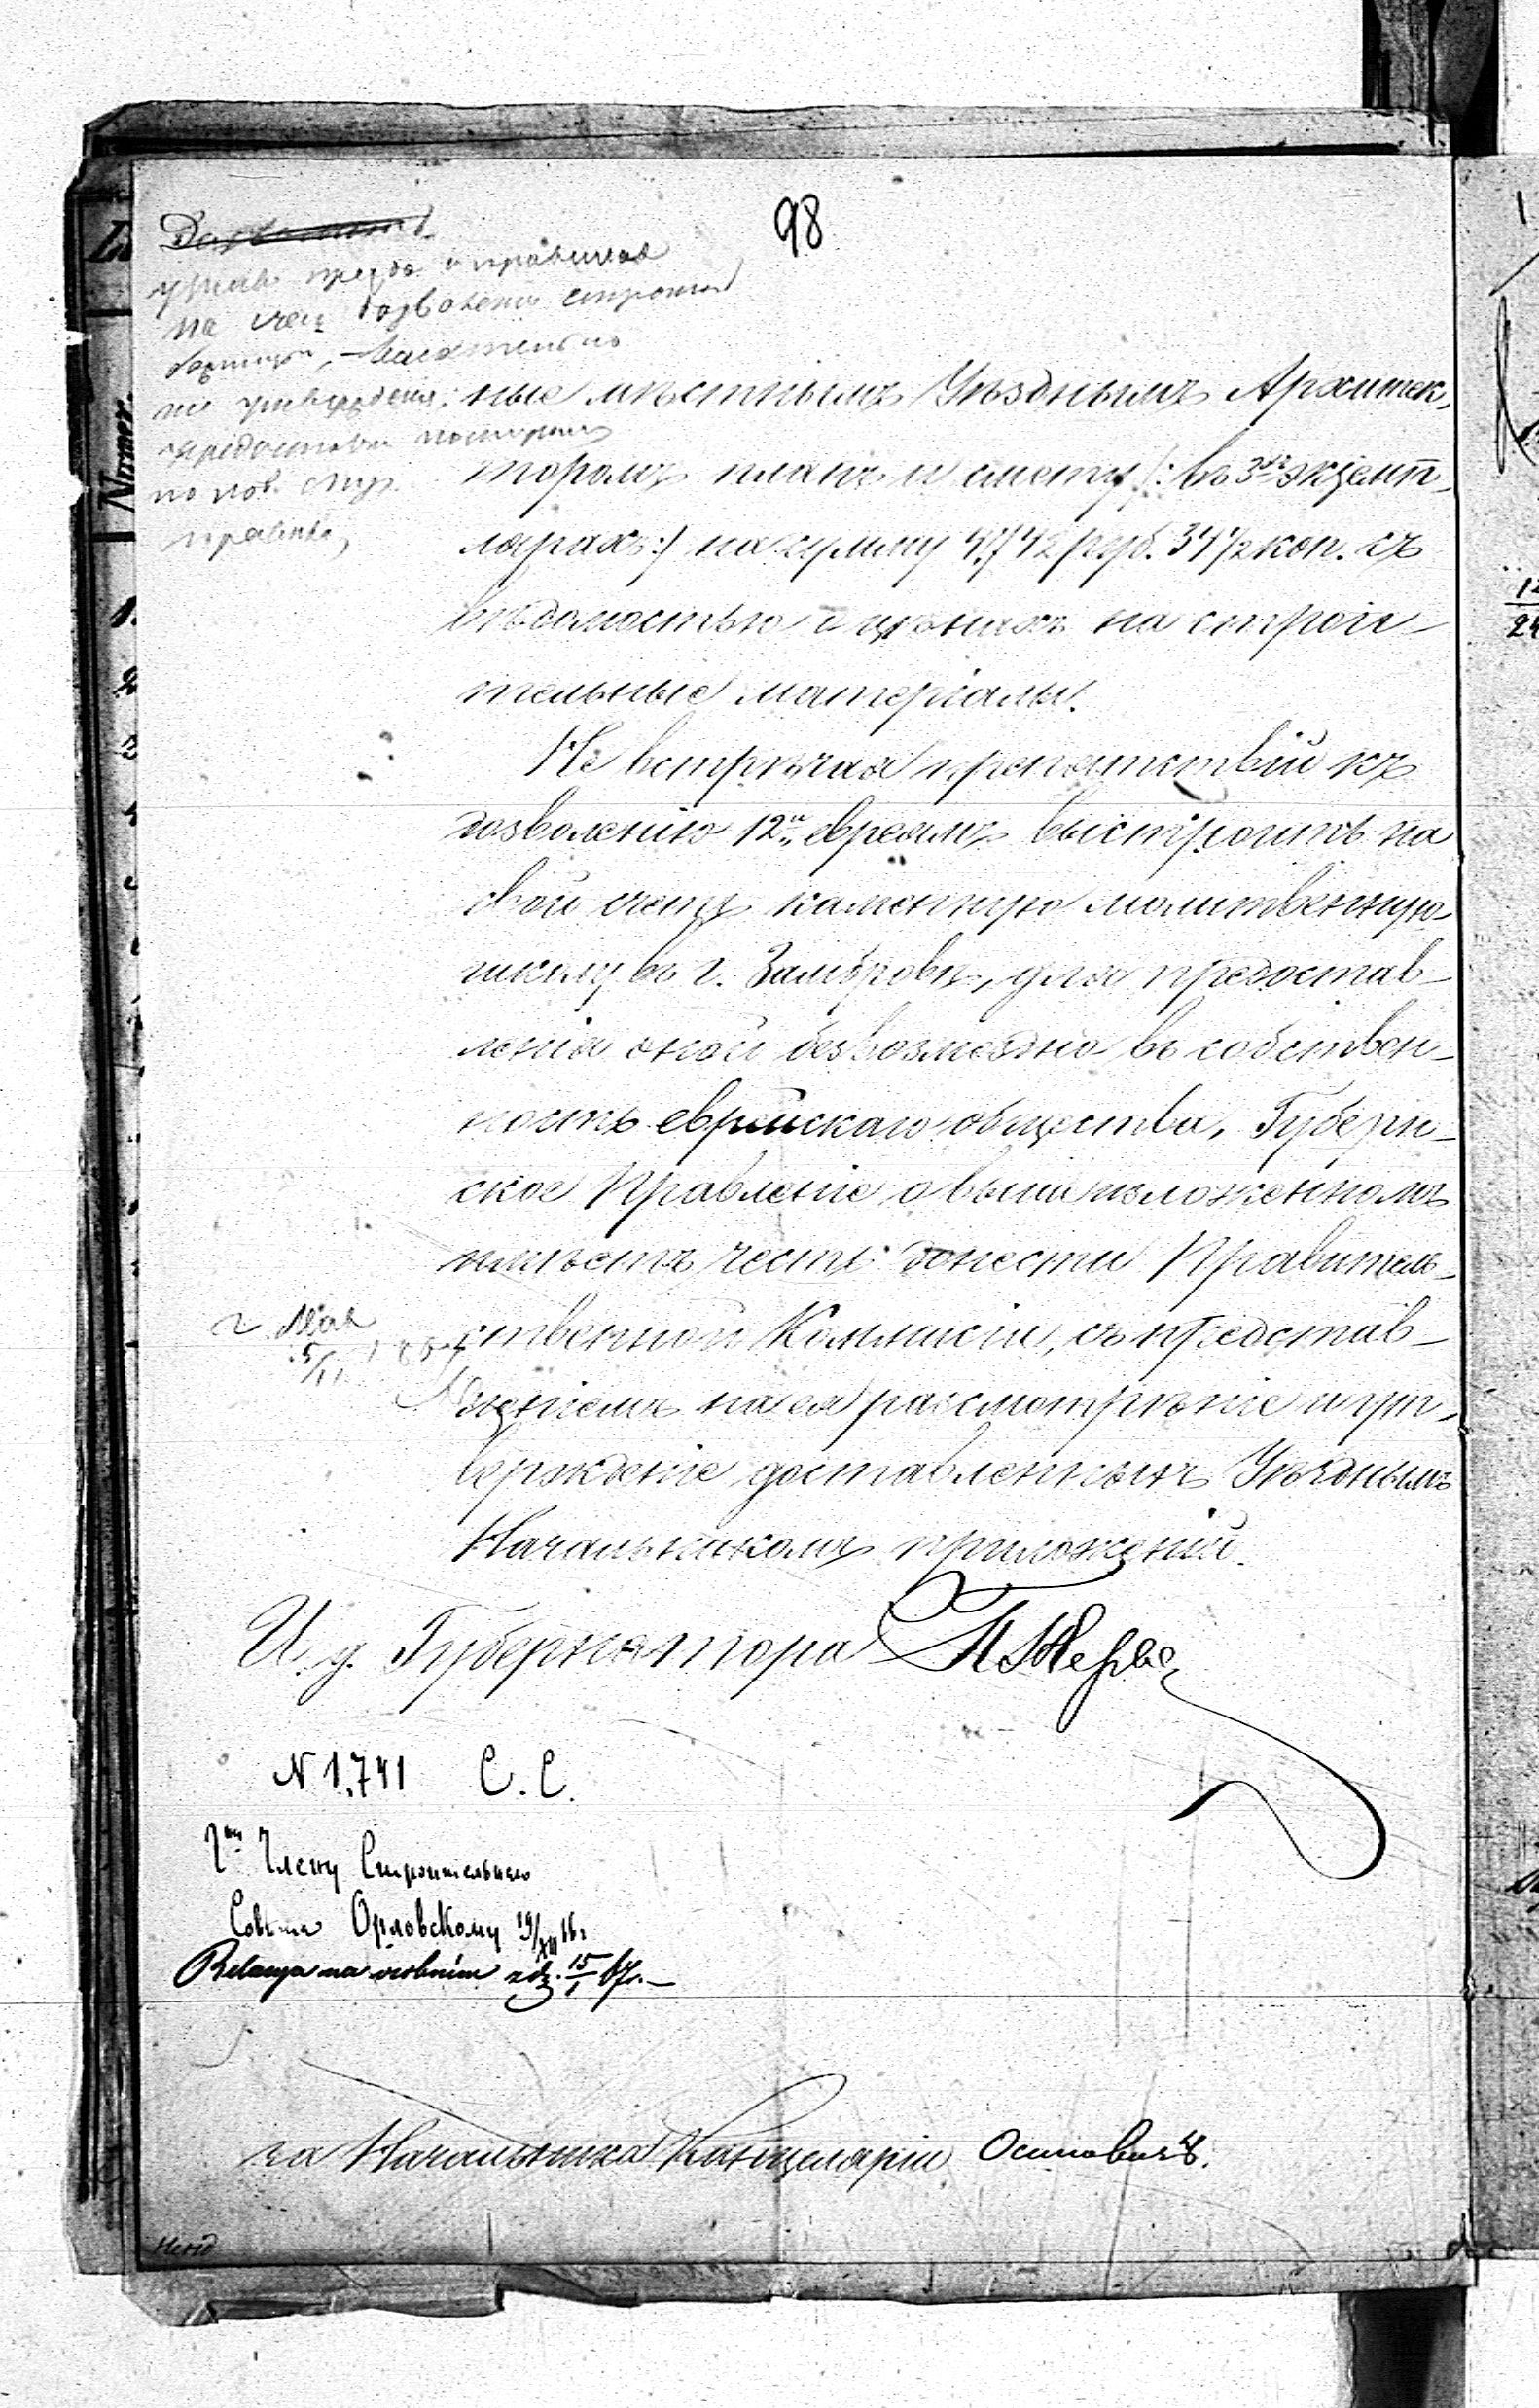 98
ные мѣстнымъ Уѣзднымъ Архитек-
торомъ планъ и смету /: въ 3хъ экземп-
лярахъ :/ на сумму 4.742 руб. 34 1/2 коп. съ
вѣдомостью о цѣнахъ на строи-
тельные матеріалы.
Не встрѣчая препятствій къ
дозволенію 12и евреямъ выстроить на
свой счетъ каменную молитвенную
школу въ г. Замбровѣ, для предостав-
ленія оной безвозмездно въ собствен-
ность еврейскаго общества, Губерн-
ское Правленіе о вышеизложенномъ
имѣетъ честь донести Правитель-
ственной Коммисіи, съ представ-
леніемъ на ея разсмотрѣніе и ут-
вержденіе доставленныхъ Уѣзднымъ
Начальникомъ приложеній.
И. д. Губернатора
N 1.741 С. С.
Члену Строительнаго
Совѣта Орловскому 19/XII
Relacya na osobnem 15/1 67.
за Начальника Канцеляріи Осиповичъ.